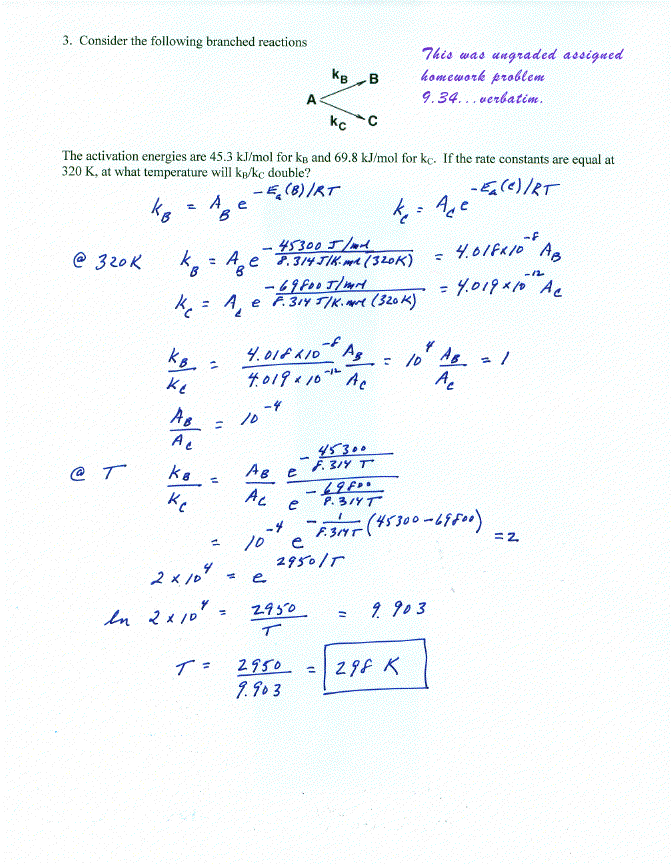 3. Consider the following branched reactions
This was ungraded assigned
homework problem
9.34...verbatim.
k_B B
A
k_C C
The activation energies are 45.3 kJ/mol for k_B and 69.8 kJ/mol for k_C. If the rate constants are equal at
320 K, at what temperature will k_B/k_C double?
k_B = A_B e^{-E_a(B)/RT} k_C = A_C e^{-E_a(C)/RT}
@ 320K k_B = A_B e^{-\frac{45300 J/mol}{8.314 J/K·mol (320K)}} = 4.018×10^{-8} A_B
k_C = A_C e^{-\frac{69800 J/mol}{8.314 J/K·mol (320K)}} = 4.019×10^{-12} A_C
\frac{k_B}{k_C} = \frac{4.018×10^{-8} A_B}{4.019×10^{-12} A_C} = 10^4 \frac{A_B}{A_C} = 1
\frac{A_B}{A_C} = 10^{-4}
@ T \frac{k_B}{k_C} = \frac{A_B}{A_C} \frac{e^{-\frac{45300}{8.314 T}}}{e^{-\frac{69800}{8.314 T}}}
= 10^{-4} e^{-\frac{1}{8.314T}(45300-69800)} = 2
2×10^4 = e^{2950/T}
ln 2×10^4 = \frac{2950}{T} = 9.903
T = \frac{2950}{9.903} = 298 K